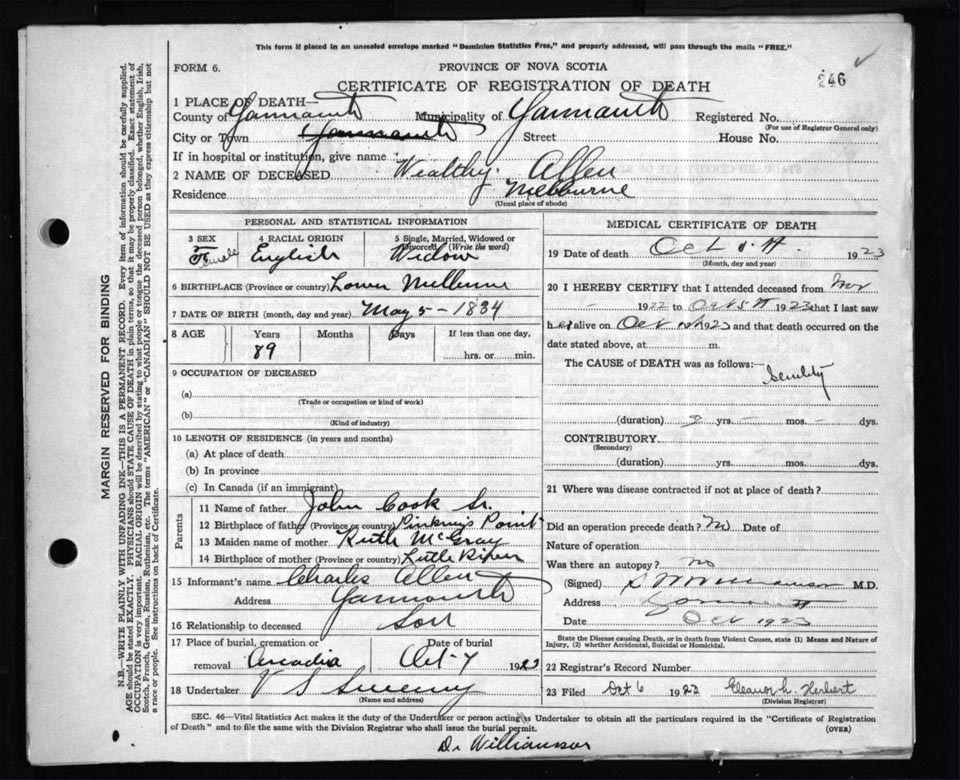 This form if placed in an unsealed envelope marked "Dominion Statistics Free," and properly addressed, will pass through the mails "FREE."
FORM 6.
PROVINCE OF NOVA SCOTIA
246
CERTIFICATE OF REGISTRATION OF DEATH
1 PLACE OF DEATH—
County of Yarmouth Municipality of Yarmouth Registered No.
(For use of Registrar General only)
City or Town Yarmouth Street House No.
If in hospital or institution, give name
2 NAME OF DECEASED Wealthy Allen
Residence Melbourne
(Usual place of abode)
PERSONAL AND STATISTICAL INFORMATION
3 SEX Female
4 RACIAL ORIGIN English
5 Single, Married, Widowed or Divorced (Write the word) Widow
6 BIRTHPLACE (Province or country) Lower Melburne
7 DATE OF BIRTH (month, day and year) May 5 - 1834
8 AGE Years Months Days If less than one day,
89 hrs. or min.
9 OCCUPATION OF DECEASED
(a)
(Trade or occupation or kind of work)
(b)
(Kind of industry)
10 LENGTH OF RESIDENCE (in years and months)
(a) At place of death
(b) In province
(c) In Canada (if an immigrant)
Parents
11 Name of father John Cook Sr.
12 Birthplace of father (Province or country) Pinkney's Point
13 Maiden name of mother Ruth McGray
14 Birthplace of mother (Province or country) Little River
15 Informant's name Charles Allen
Address Yarmouth
16 Relationship to deceased Son
17 Place of burial, cremation or removal Arcadia Date of burial Oct 7 1923
18 Undertaker V S Sweeny
(Name and address)
MEDICAL CERTIFICATE OF DEATH
19 Date of death Oct 1923
(Month, day and year)
20 I HEREBY CERTIFY that I attended deceased from Nov
1922 to Oct 5th 1923 that I last saw
her alive on Oct 1923 and that death occurred on the
date stated above, at m.
The CAUSE of DEATH was as follows:— Senility
(duration) yrs. mos. dys.
CONTRIBUTORY
(Secondary)
(duration) yrs. mos. dys.
21 Where was disease contracted if not at place of death?
Did an operation precede death? No Date of
Nature of operation
Was there an autopsy? no
(Signed) Williamson M.D.
Address Yarmouth
Date Oct 1923
State the Disease causing Death, or in death from Violent Causes, state (1) Means and Nature of Injury, (2) whether Accidental, Suicidal or Homicidal.
22 Registrar's Record Number
23 Filed Oct 6 1923 Eleanor L. Herbert
(Division Registrar)
SEC. 46—Vital Statistics Act makes it the duty of the Undertaker or person acting as Undertaker to obtain all the particulars required in the "Certificate of Registration
of Death" and to file the same with the Division Registrar who shall issue the burial permit. (OVER)
Dr Williamson
MARGIN RESERVED FOR BINDING
N.B.—WRITE PLAINLY WITH UNFADING INK—THIS IS A PERMANENT RECORD. Every item of information should be carefully supplied.
AGE should be stated EXACTLY. PHYSICIANS should STATE CAUSE OF DEATH in plain terms, so that it may be properly classified. Exact statement of
OCCUPATION is very important. RACIAL ORIGIN will be described by stating to what people or tongue the deceased person belonged, whether English, Irish,
Scotch, French, German, Russian, Ruthenian, etc. The terms "AMERICAN" or "CANADIAN" SHOULD NOT BE USED as they express citizenship but not
a race or people. See instructions on back of Certificate.